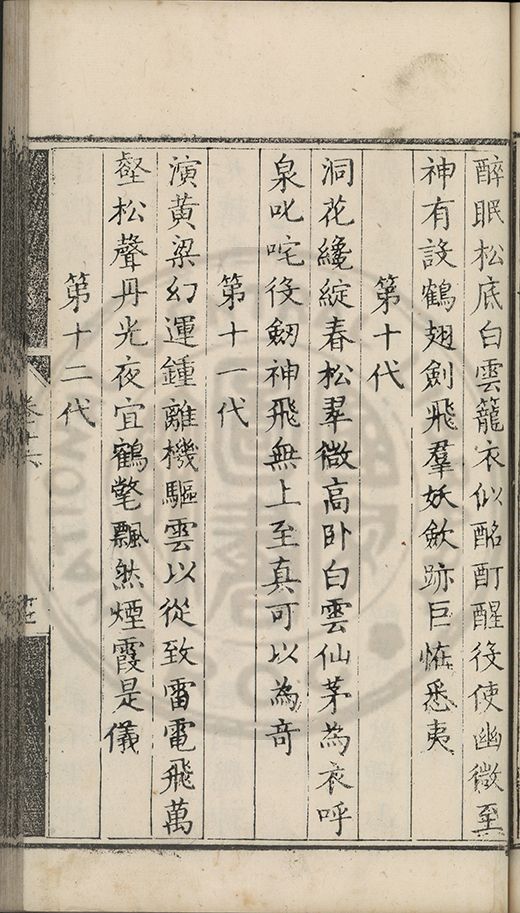 醉眠松底白雲籠衣似酩酊醒役使幽微至
神有設鶴翅劍飛羣妖歛跡巨恠悉夷
第十代
洞花纔綻春松翠微高卧白雲仙茅為衣呼
泉叱咤役劒神飛無上至真可以為竒
第十一代
演黃粱幻運鍾離機驅雲以從致雷電飛萬
壑松聲丹光夜宜鶴氅飄然煙霞是儀
第十二代